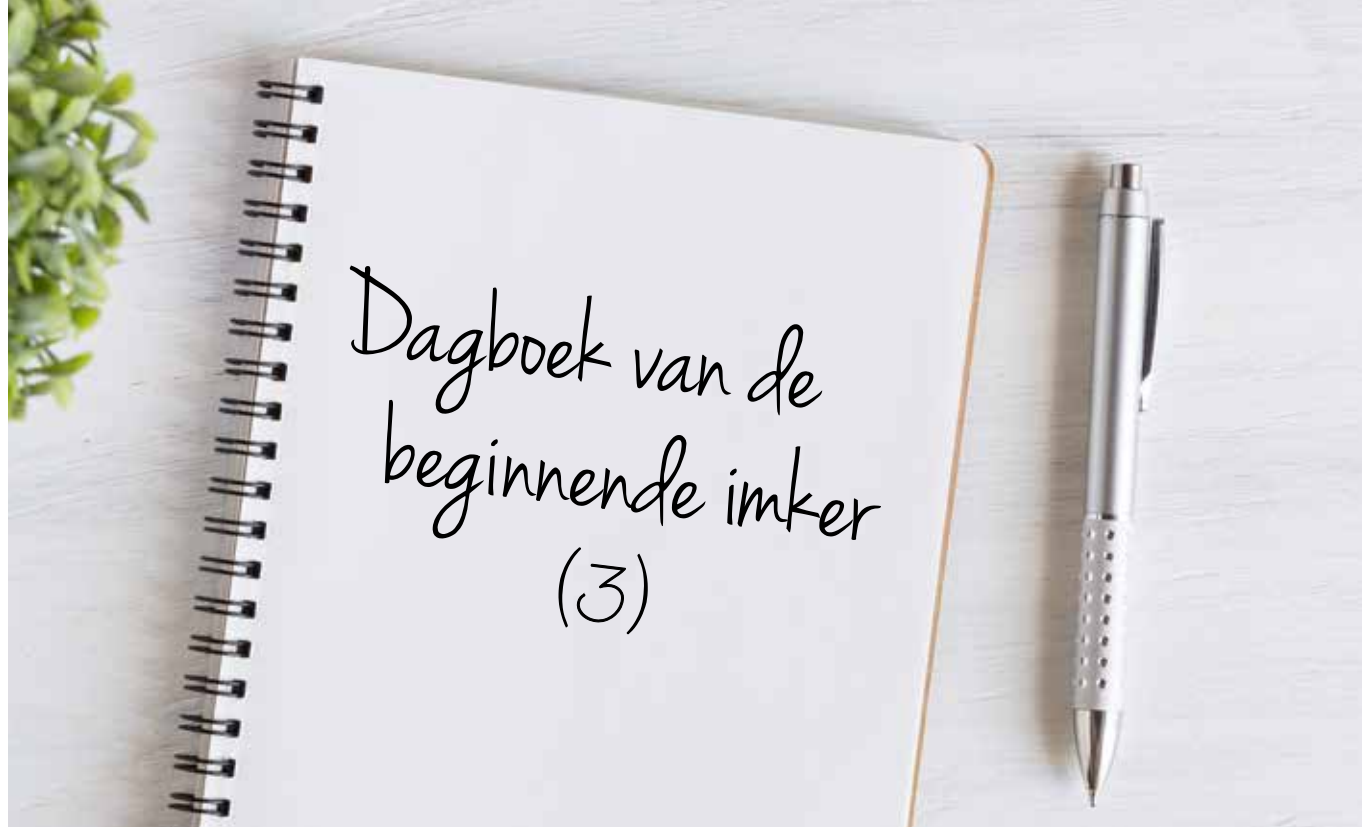 Dagboek van de
beginnende imker
(3)